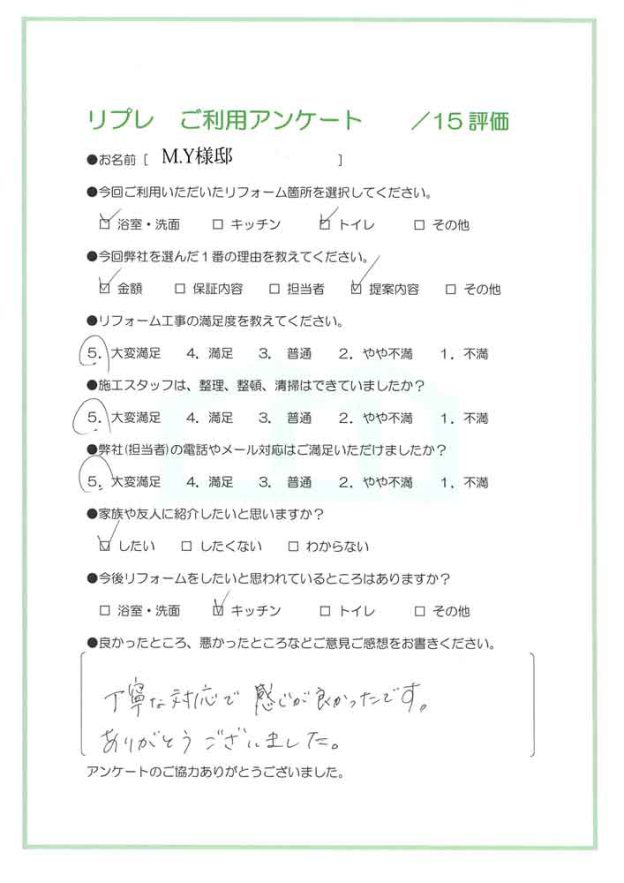 リプレ　ご利用アンケート　　／15評価
●お名前 [ M.Y様邸 ]
●今回ご利用いただいたリフォーム箇所を選択してください。
☑ 浴室・洗面　□ キッチン　☑ トイレ　□ その他
●今回弊社を選んだ１番の理由を教えてください。
☑ 金額　□ 保証内容　□ 担当者　☑ 提案内容　□ その他
●リフォーム工事の満足度を教えてください。
5．大変満足　4．満足　3．普通　2．やや不満　1．不満
●施工スタッフは、整理、整頓、清掃はできていましたか？
5．大変満足　4．満足　3．普通　2．やや不満　1．不満
●弊社(担当者)の電話やメール対応はご満足いただけましたか？
5．大変満足　4．満足　3．普通　2．やや不満　1．不満
●家族や友人に紹介したいと思いますか？
☑ したい　□ したくない　□ わからない
●今後リフォームをしたいと思われているところはありますか？
□ 浴室・洗面　☑ キッチン　□ トイレ　□ その他
●良かったところ、悪かったところなどご意見ご感想をお書きください。
丁寧な対応で 感じが良かったです。
ありがとうございました。
アンケートのご協力ありがとうございました。